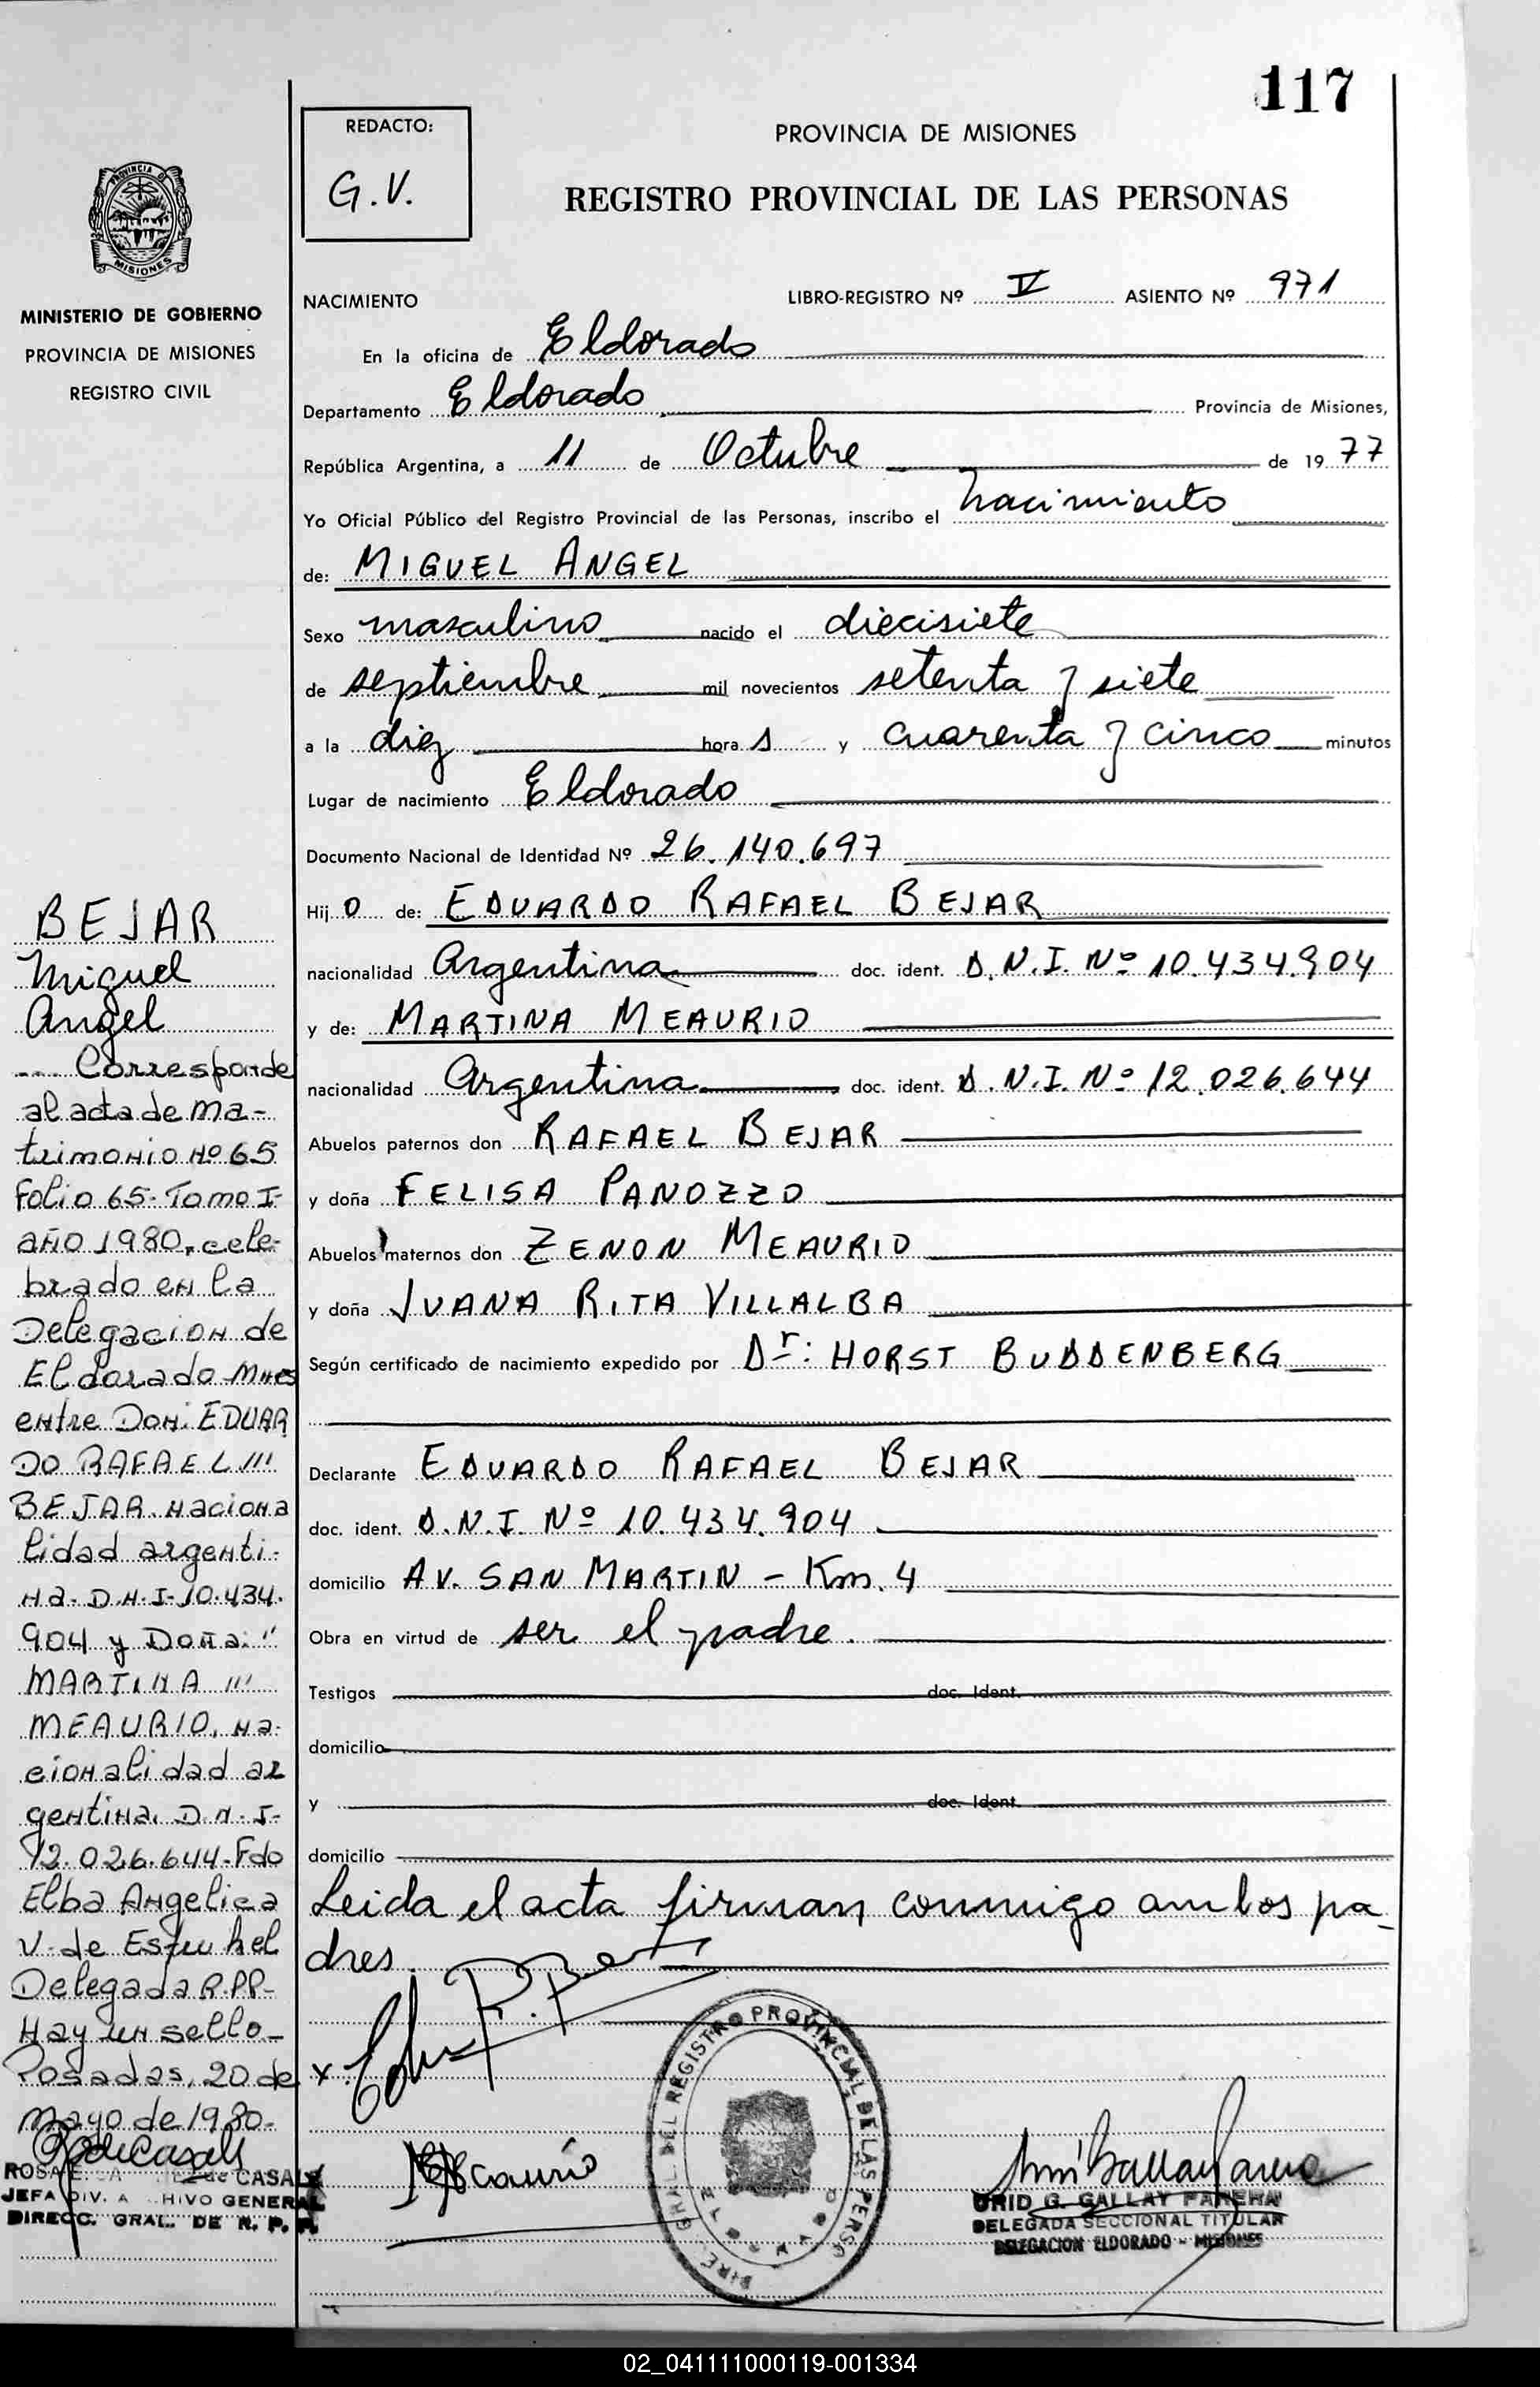 117
REDACTO:
G.V.
PROVINCIA DE MISIONES
REGISTRO PROVINCIAL DE LAS PERSONAS
PROVINCIA D MISIONES
MINISTERIO DE GOBIERNO
PROVINCIA DE MISIONES
REGISTRO CIVIL
NACIMIENTO
LIBRO-REGISTRO Nº IV ASIENTO Nº 971
En la oficina de Eldorado
Departamento Eldorado Provincia de Misiones,
República Argentina, a 11 de Octubre de 1977
Yo Oficial Público del Registro Provincial de las Personas, inscribo el nacimiento
de: MIGUEL ANGEL
Sexo masculino nacido el diecisiete
de septiembre mil novecientos setenta y siete
a la diez hora s y cuarenta y cinco minutos
Lugar de nacimiento Eldorado
Documento Nacional de Identidad Nº 26.140.697
Hij o de: EDUARDO RAFAEL BEJAR
nacionalidad Argentina doc. ident. D.N.I. Nº 10.434.904
y de: MARTINA MEAURIO
nacionalidad Argentina doc. ident. D.N.I. Nº 12.026.644
Abuelos paternos don RAFAEL BEJAR
y doña FELISA PANOZZO
Abuelos maternos don ZENON MEAURIO
y doña JUANA RITA VILLALBA
Según certificado de nacimiento expedido por Dr: HORST BUDDENBERG
Declarante EDUARDO RAFAEL BEJAR
doc. ident. D.N.I. Nº 10.434.904
domicilio AV. SAN MARTIN - Km. 4
Obra en virtud de ser el padre.
Testigos doc. Ident.
domicilio
y doc. Ident.
domicilio
Leida el acta firman conmigo ambos pa-
dres.
BEJAR
Miguel
Angel
Corresponde
al acta de ma-
trimonio Nº 65
Folio 65- Tomo I-
año 1980, cele-
brado en la
Delegacion de
Eldorado Mnes
entre Don: EDUAR
DO RAFAEL
BEJAR. naciona
lidad argenti-
na- D.N.I- 10.434.
904 y Doña:
MARTINA
MEAURIO, na-
cionalidad ar
gentina. D.N.I-
12.026.644-Fdo
Elba Angelica
V. de
Delegada R.PP-
Hay un sello-
Posadas, 20 de
mayo de 1980-
ROSA E. de CASALS
JEFA DIV. ARCHIVO GENERAL
DIRECC. GRAL. DE R. P. P.
x
DIRE. GRAL. DEL REGISTRO PROVINCIAL DE LAS PERSO
ELDORADO
URID G. GALLAY PARERA
DELEGADA SECCIONAL TITULAR
DELEGACION ELDORADO - MISIONES
02_041111000119-001334